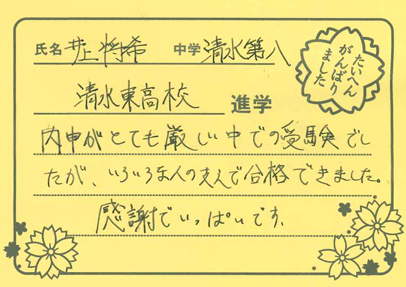 氏名 井上将希 中学 清水第八
たいへん
がんばり
ました
清水東高校 進学
内申がとても厳しい中での受験でし
たが、いろいろな人の支えで合格できました。
感謝でいっぱいです。